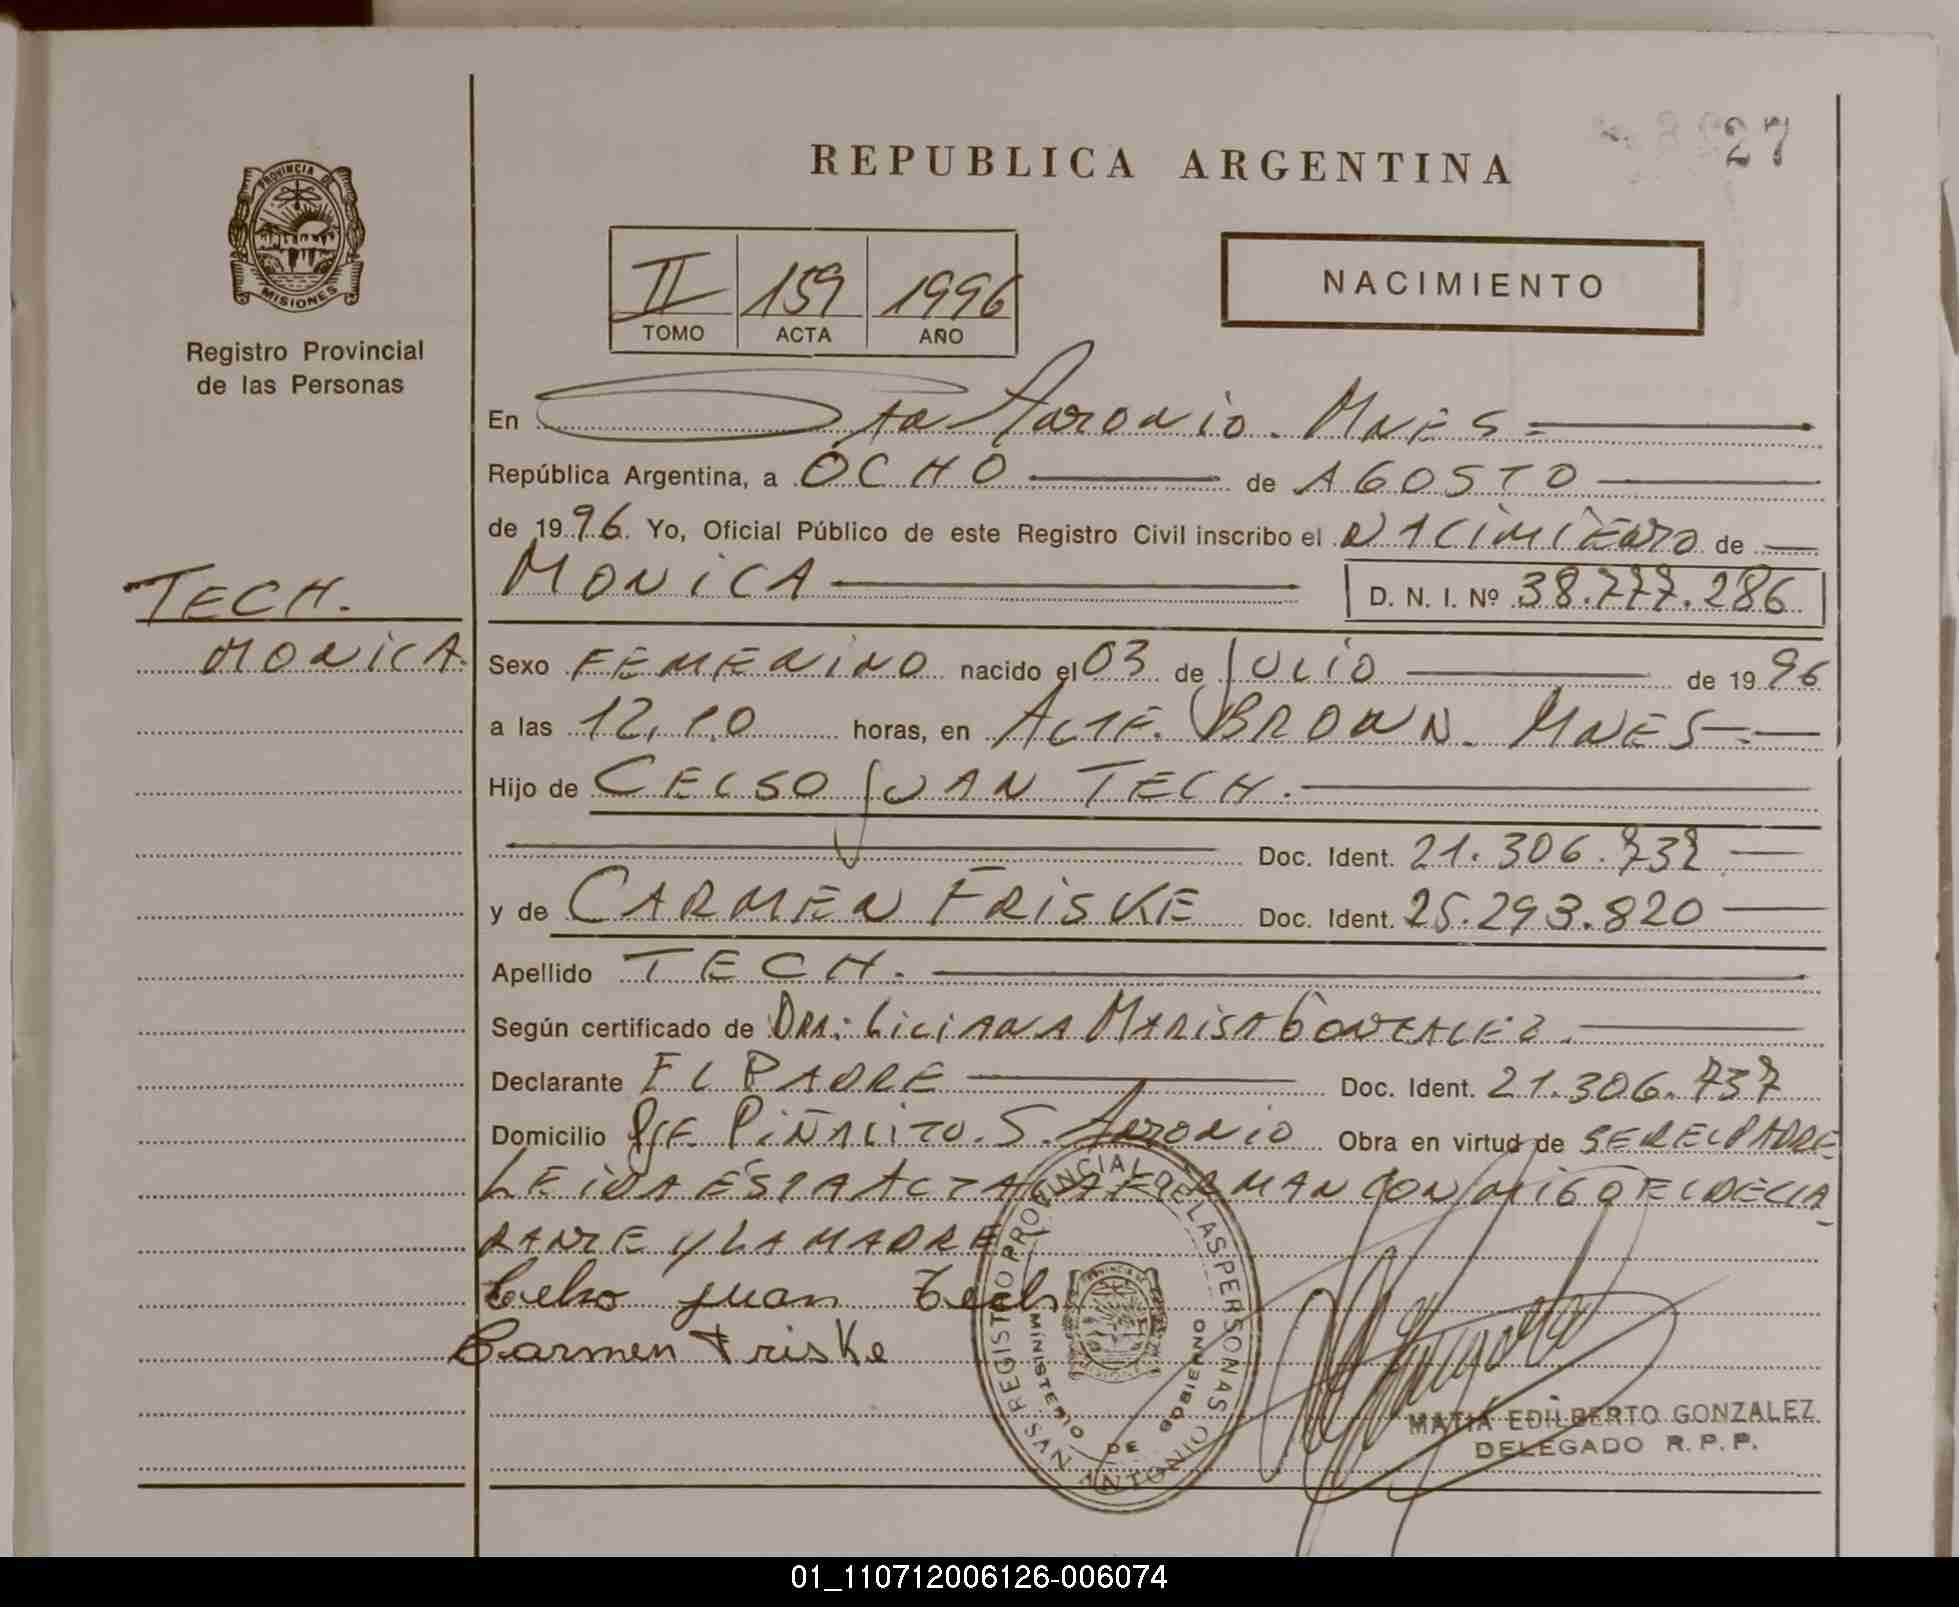 27
REPUBLICA ARGENTINA
PROVINCIA DE
MISIONES
Registro Provincial
de las Personas
II 159 1996
TOMO ACTA AÑO
NACIMIENTO
En San Antonio. Mnes =
República Argentina, a OCHO de AGOSTO
de 1996. Yo, Oficial Público de este Registro Civil inscribo el NACIMIENTO de
MONICA D. N. I. Nº 38.777.286
TECH.
MONICA.
Sexo FEMENINO nacido el 03 de JULIO de 1996
a las 12,10 horas, en ALTE. BROWN. MNES.
Hijo de CELSO JUAN TECH.
Doc. Ident. 21.306.737
y de CARMEN FRISKE Doc. Ident. 25.293.820
Apellido TECH.
Según certificado de DRA: LILIANA MARISA GONZALEZ.
Declarante EL PADRE Doc. Ident. 21.306.737
Domicilio PJE PIÑALITO. S. ANTONIO Obra en virtud de SER EL PADRE
LEIDA ESTA ACTA LA FIRMAN CONMIGO EL DECLA-
RANTE Y LA MADRE
Celso juan Tech
Carmen Friske
REGISTO PROVINCIAL DE LAS PERSONAS
MINISTERIO DE GOBIERNO
ANTONIO
MATIA EDILBERTO GONZALEZ
DELEGADO R. P. P.
01_110712006126-006074